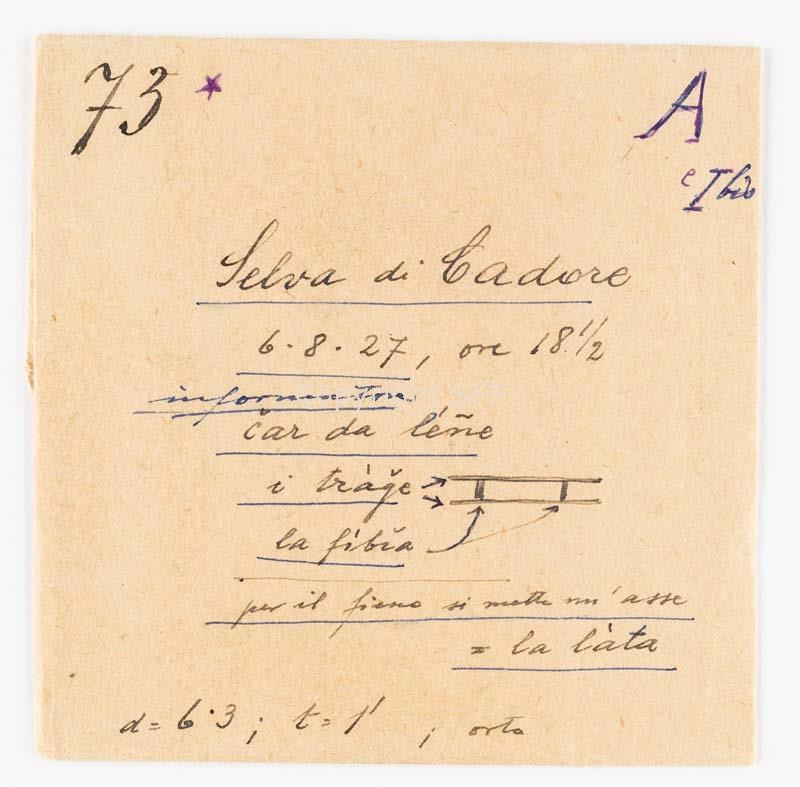 73 *
A
e I bis
Selva di Cadore
6·8·27, ore 18 1/2
informatore
čar da léñe
i tràğe
la fíbia
per il fieno si mette un'asse
= la làta
d = 6·3 ; t = 1' ; orto